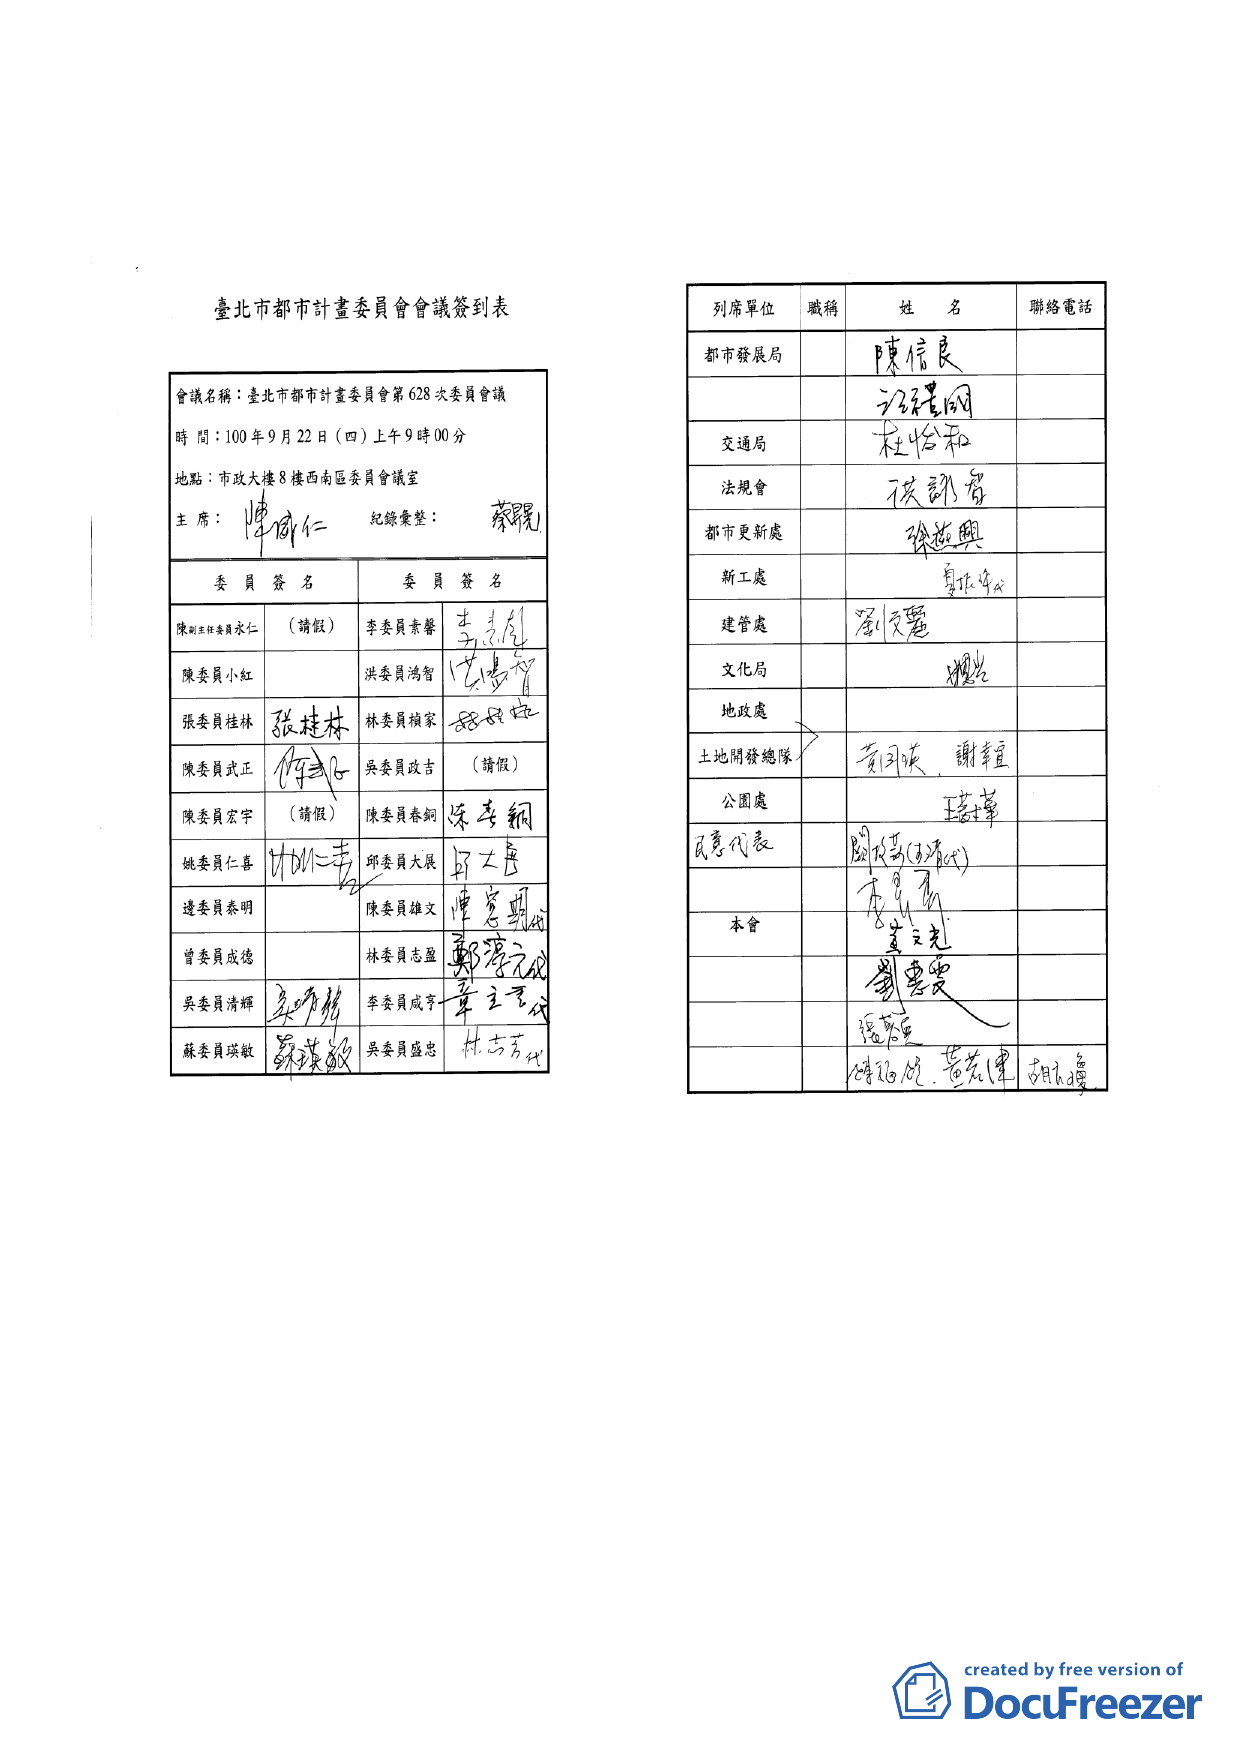 臺北市都市計畫委員會會議簽到表
會議名稱：臺北市都市計畫委員會第628次委員會議
時 間：100年9月22日（四）上午9時00分
地點：市政大樓8樓西南區委員會議室
主 席： 陳威仁 紀錄彙整：
委 員 簽 名 委 員 簽 名
陳副主任委員永仁 （請假） 李委員素馨
陳委員小紅 洪委員鴻智 洪鴻智
張委員桂林 張桂林 林委員楨家
陳委員武正 吳委員政吉 （請假）
陳委員宏宇 （請假） 陳委員春銅 陳春銅
姚委員仁喜 姚仁喜 邱委員大展 邱大展
邊委員泰明 陳委員雄文 代
曾委員成德 林委員志盈 鄭淳元代
吳委員清輝 吳清輝 李委員咸亨 章立言代
蘇委員瑛敏 蘇瑛敏 吳委員盛忠 林志芳代
列席單位 職稱 姓 名 聯絡電話
都市發展局 陳信良
交通局 杜怡和
法規會 洪詠智
都市更新處 徐燕興
新工處
建管處
文化局
地政處
土地開發總隊 謝幸宜
公園處
民意代表
本會 黃文光
劉惠雯
黃若津
created by free version of
DocuFreezer